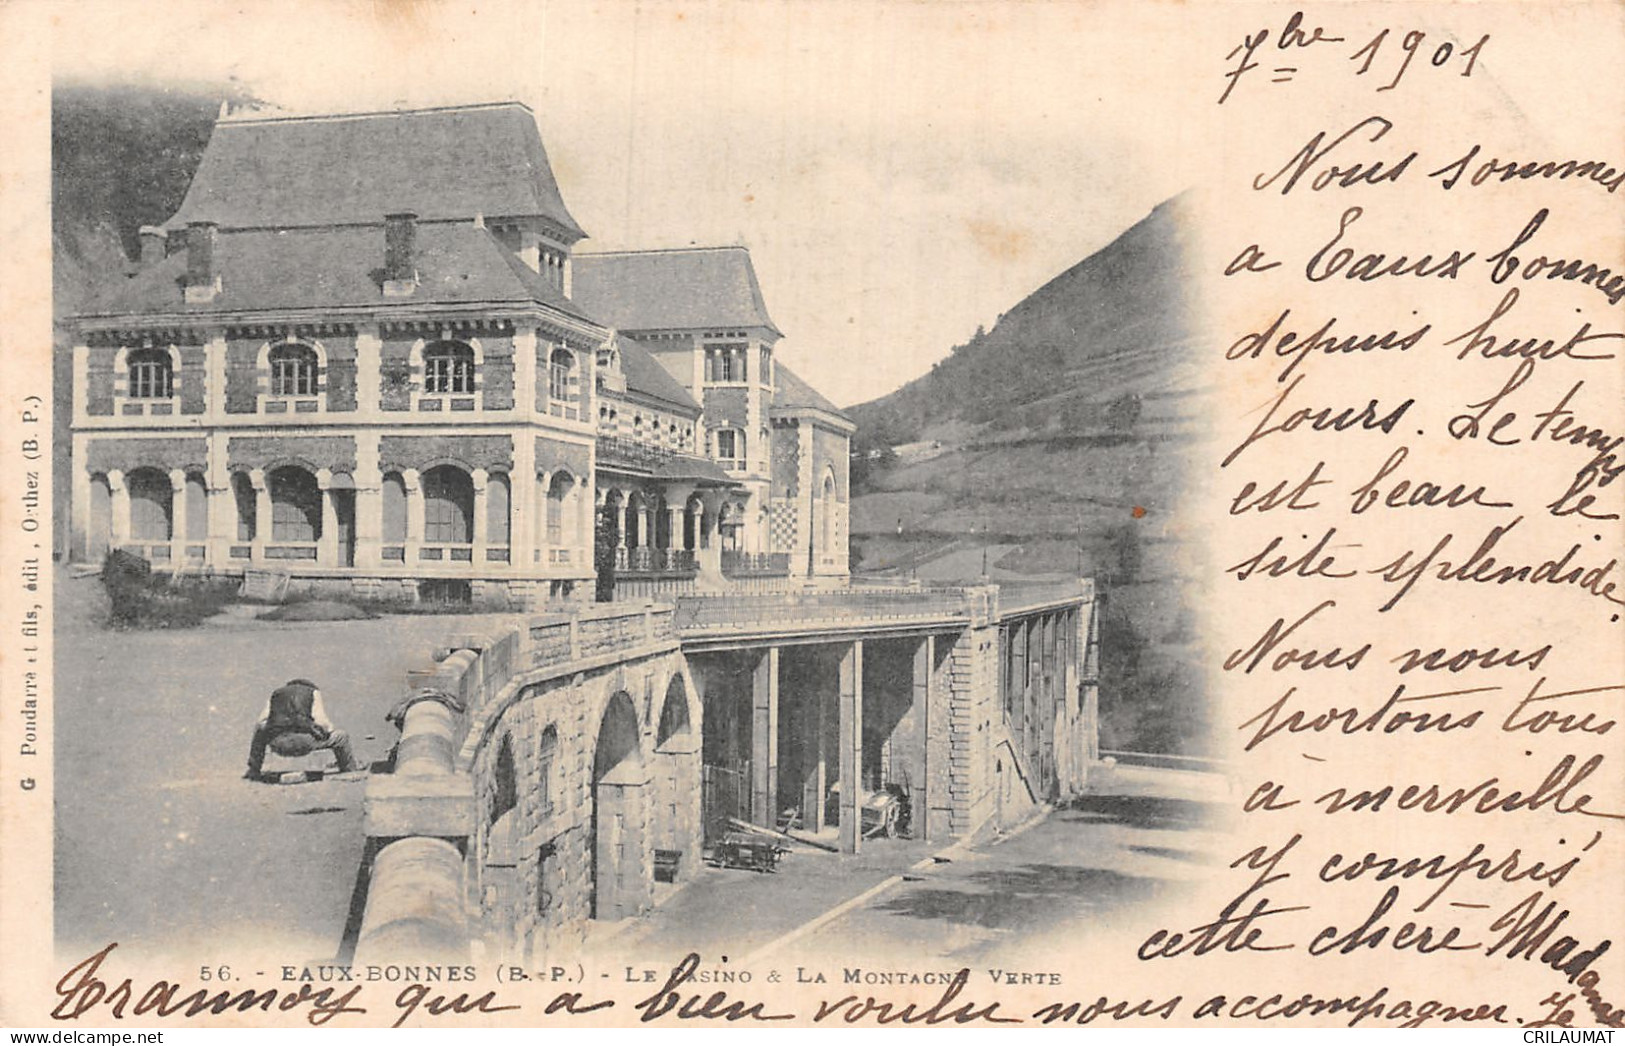 7bre 1901
Nous sommes
a Eaux bonnes
depuis huit
jours. Le temps
est beau, le
site splendide.
Nous nous
portons tous
à merveille
y compris
cette chère Madame
Trannoy qui a bien voulu nous accompagner. Je
56. - EAUX-BONNES (B.-P.) - LE CASINO & LA MONTAGNE VERTE
G Pondarré et fils, édit, Orthez (B. P.)
CRILAUMAT